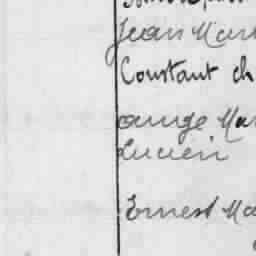 Jean Mar
Constant ch
ange Mar
Lucien
Ernest Ma